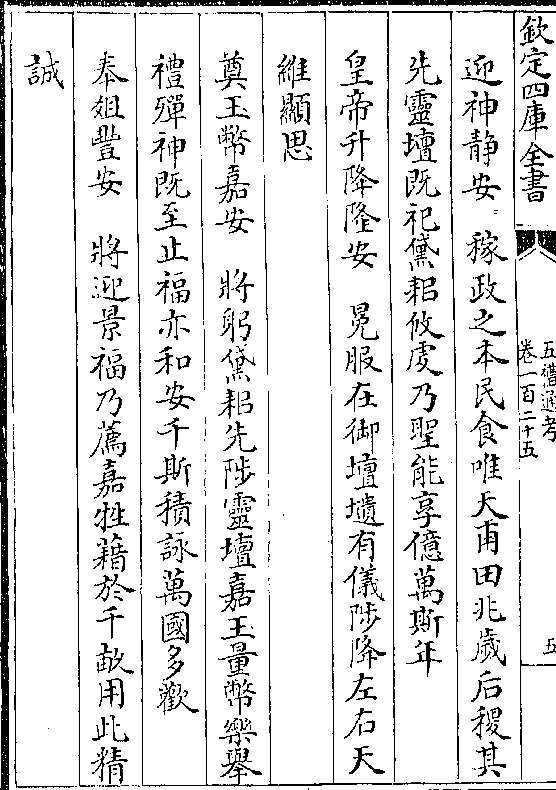 欽定四庫全書
五禮通考
卷一百二十五
五
迎神静安 稼政之本民食唯天甫田兆歲后稷其
先靈壇既祀黛耜攸䖍乃聖能享億萬斯年
皇帝升降隆安 冕服在御壇壝有儀陟降左右天
維顯思
奠玉幣嘉安 將躬黛耜先陟靈壇嘉玉量幣樂舉
禮殫神既至止福亦和安千斯積詠萬國多歡
奉俎豊安 將迎景福乃薦嘉牲藉於千畝用此精
誠